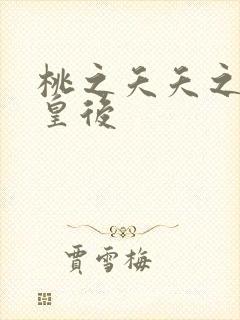 桃之夭夭之
皇後
賈雪梅